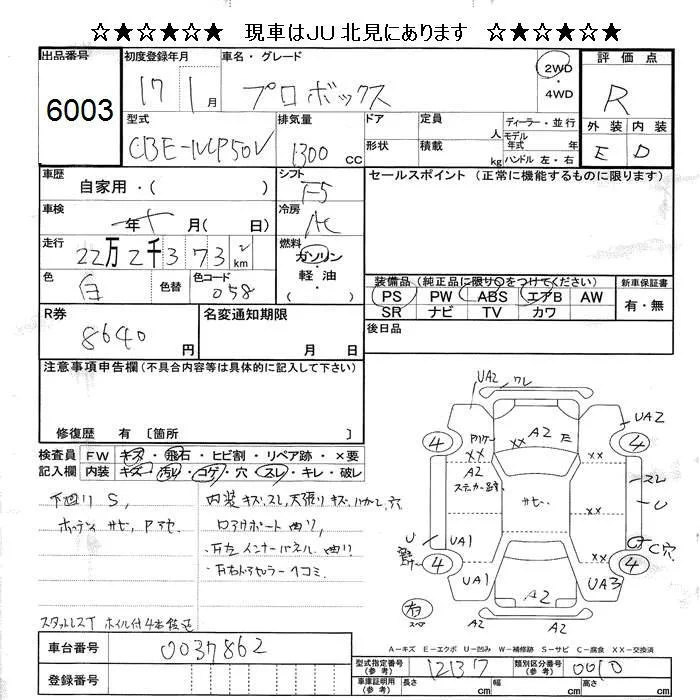 ☆★☆★☆★ 現車はJU北見にあります ☆★☆★☆★
出品番号
6003
初度登録年月
17 1月
車名・グレード
プロボックス
2WD
・
4WD
評価点
R
外装 内装
E D
型式
CBE-NCP50V
排気量
1300 CC
ドア
定員
人
形状
積載
kg
ディーラー・並行
モデル年式 年式
ハンドル 左・右
車歴
自家用・( )
シフト
F5
セールスポイント(正常に機能するものに限ります)
車検
年 月( 日)
冷房
AC
走行
22万2千373 km
燃料
ガソリン
・
軽油
( )
色
白
色替
色コード
058
装備品(純正品に限り○をつけてください)
PS PW ABS エアB AW
SR ナビ TV カワ
新車保証書
有・無
R券
8640円
名変通知期限
月 日
後日品
注意事項申告欄(不具合内容等は具体的に記入して下さい)
修復歴 有 〔箇所 〕
検査員記入欄
FW キズ・飛石・ヒビ割・リペア跡・×要
内装 キズ・汚れ・コゲ・穴・スレ・キレ・破レ
下廻り S,
ボディ サビ, Pアセ
内装キズ,スレ,天張りキズ,ハガレ,穴
ロアサポート曲り,
・左インナーパネル 曲り
ヘコミ
スタットレスT ホイル付4本積込
UA2 ワレ
UA2
4 ××
A2 E
4
A2 ××
ステッカー跡
サビ
××
スレ
U
U
UA1
××
4
C穴
4
UA1
UA3
A2
右
スペア
A2
A-キズ E-エクボ U-凹み W-補修跡 S-サビ C-腐食 XX-交換済
車台番号
0037862
登録番号
型式指定番号(参考)
12137
類別区分番号(参考)
0010
車庫証明用(参考)
長さ cm 幅 cm 高さ cm